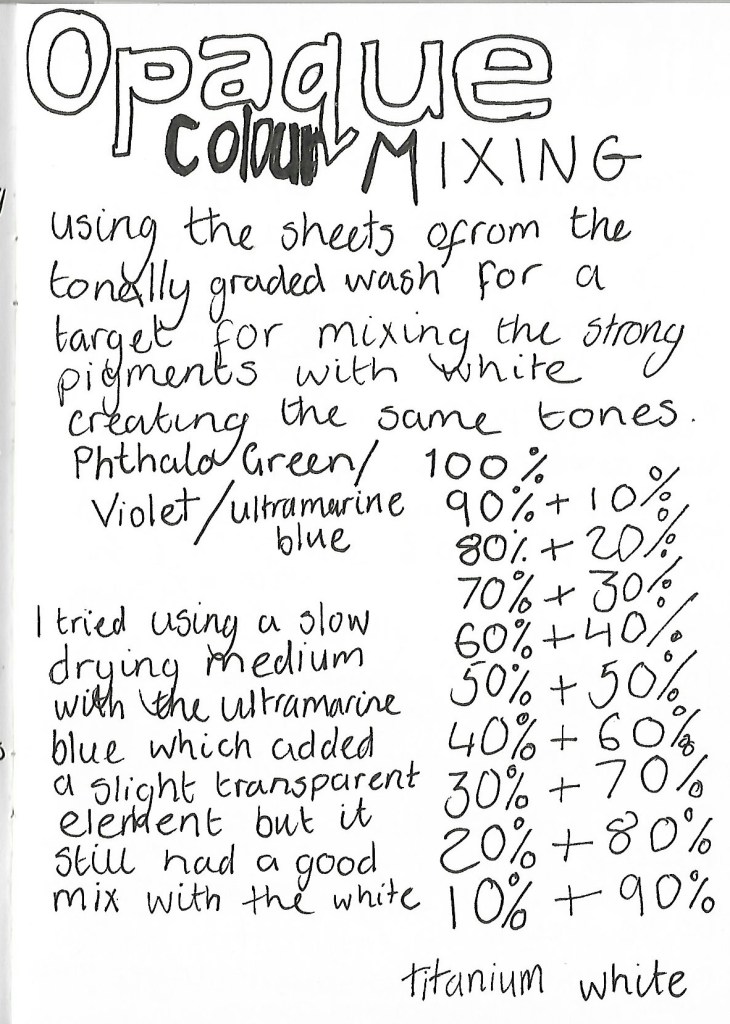 Opaque
colour MIXING
using the sheets ofrom the
tonally graded wash for a
target for mixing the strong
pigments with white
creating the same tones.
Phthalo Green/ 100%
Violet/ultramarine 90% + 10%
blue 80% + 20%
70% + 30%
I tried using a slow 60% + 40%
drying medium 50% + 50%
with the ultramarine
blue which added 40% + 60%
a slight transparent 30% + 70%
element but it 20% + 80%
still had a good
mix with the white 10% + 90%
titanium white